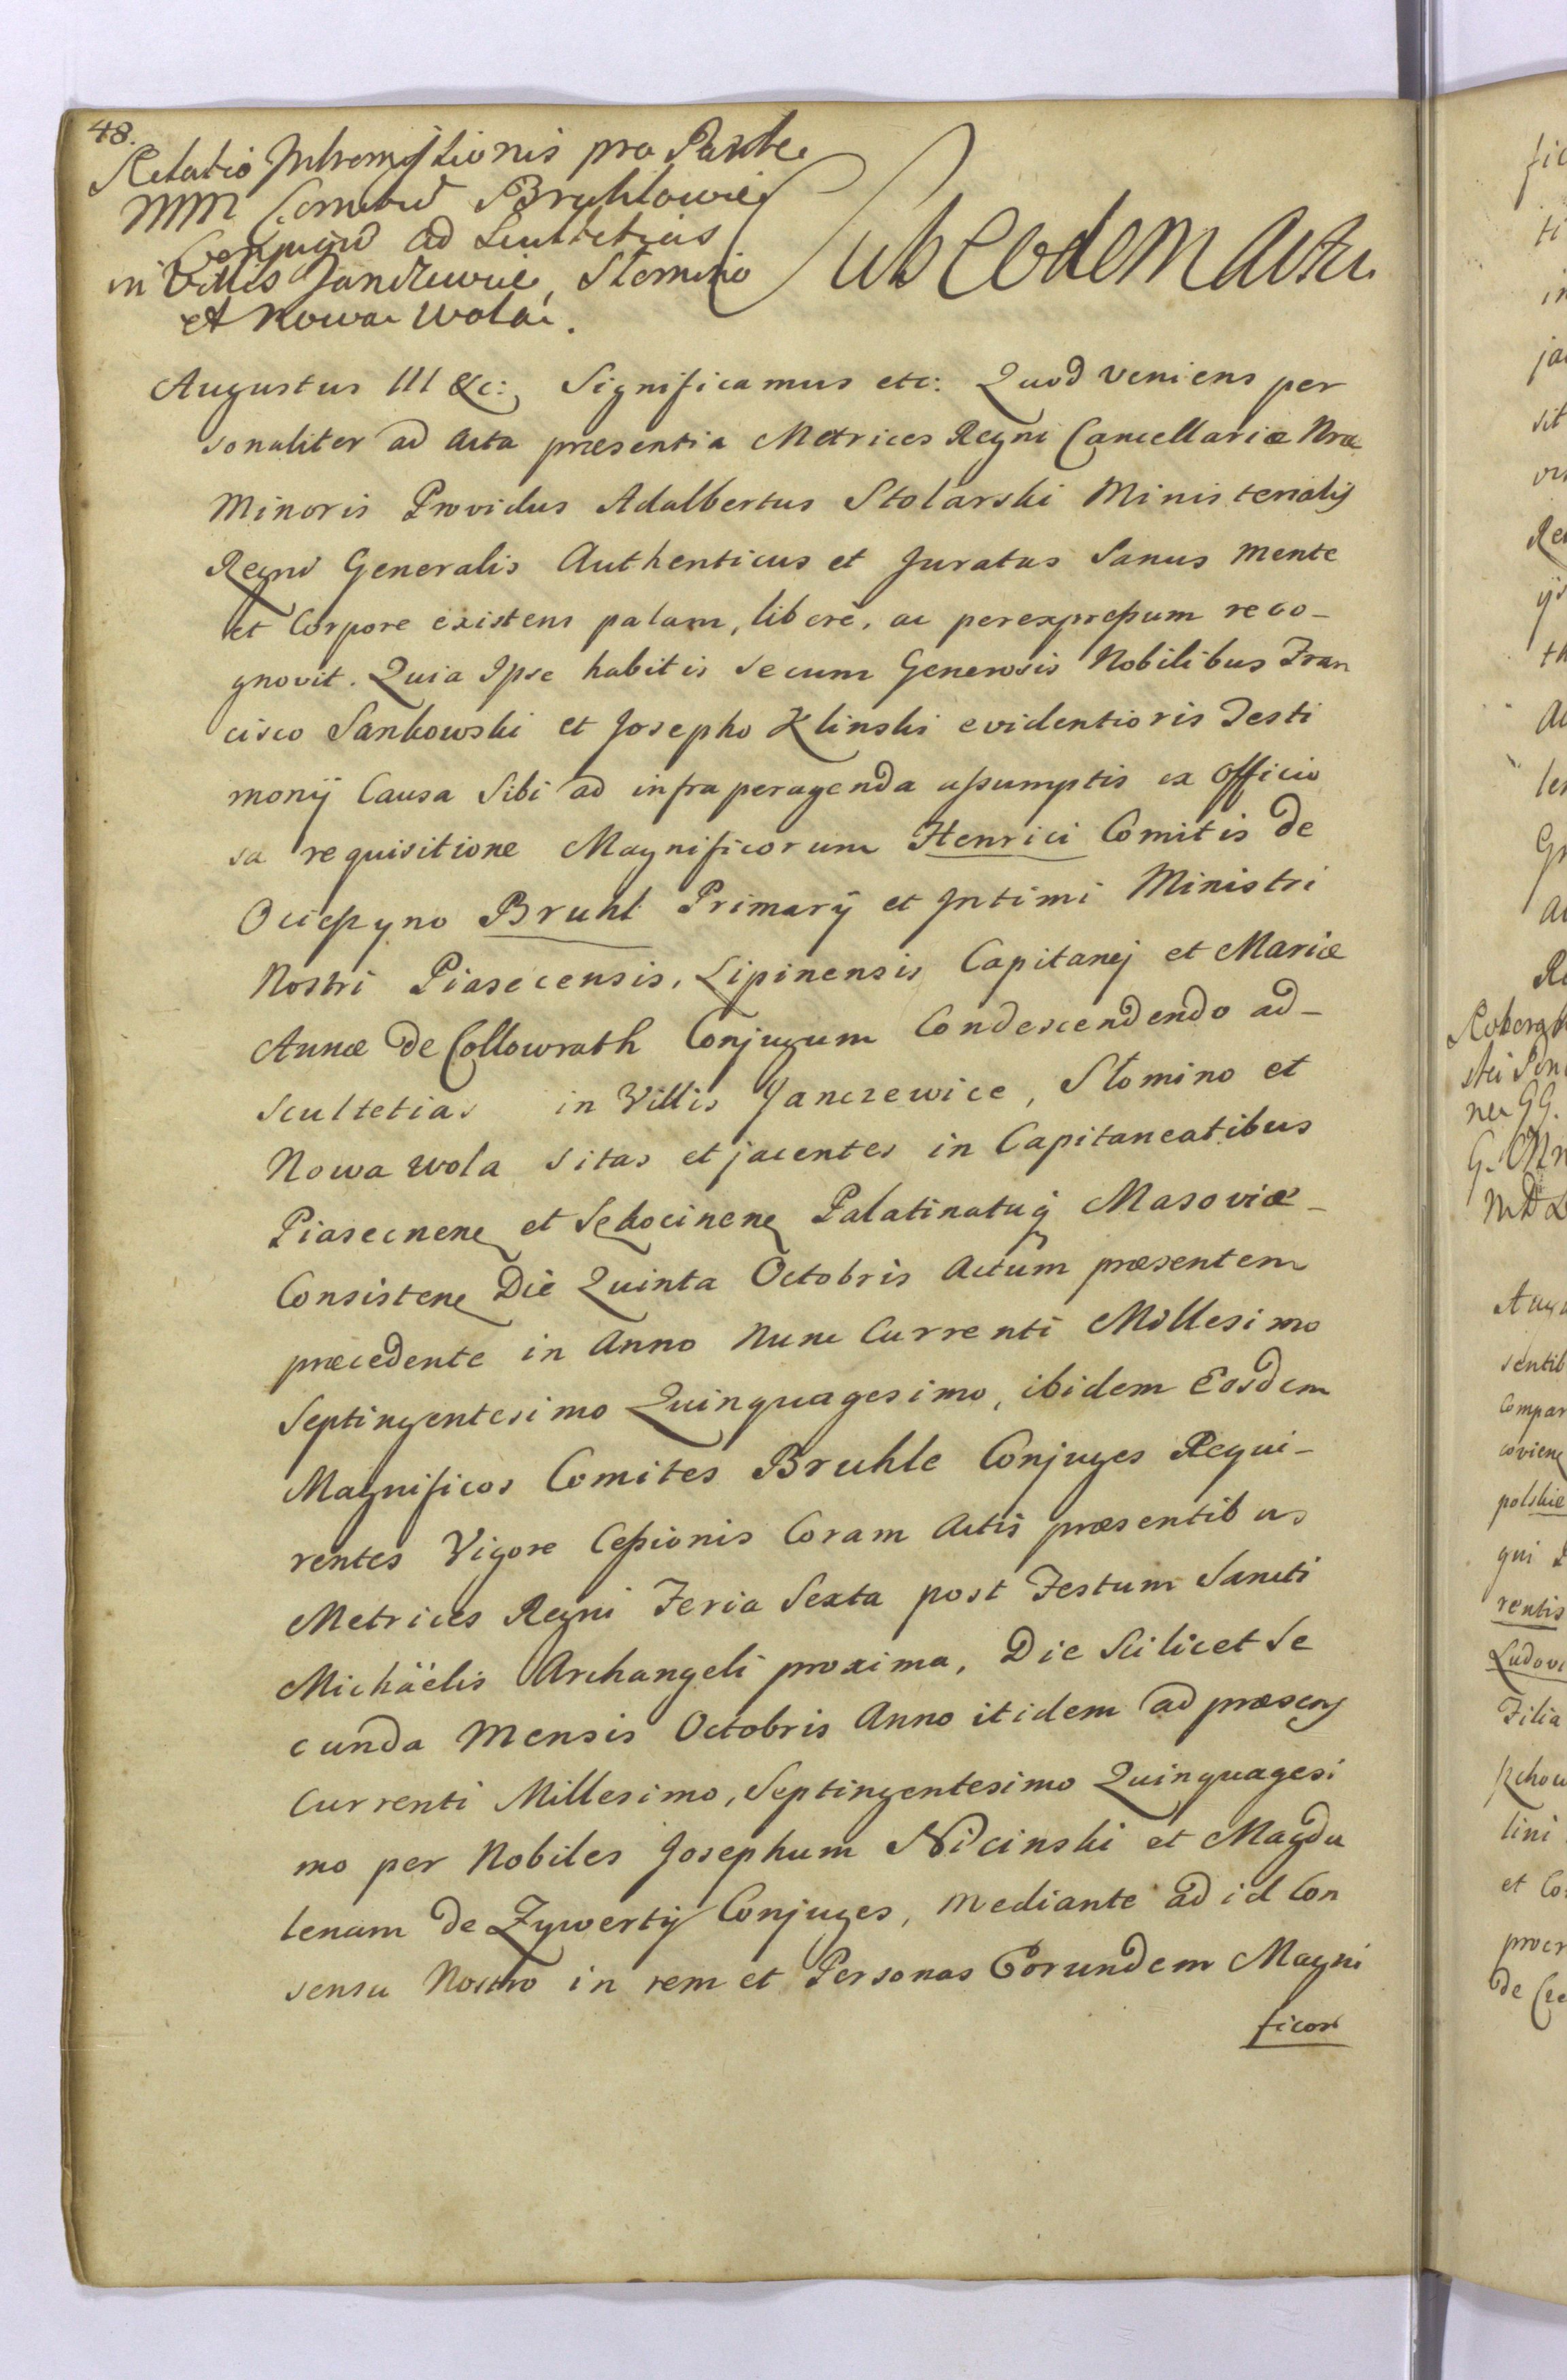 48.
Relatio Intromissionis pro Parte
MM Comitu Bruhlowie
Conjugu ad Scultetias
in Villis Janczewice, Slomino
et Nowa Wola.
Sub eodem Actu
Augustus III &c: Significamus etc: Quod veniens per
sonaliter ad Acta præsentia Metrices Regni Cancellariæ Nræ
Minoris Providus Adalbertus Stolarski Ministerialis
Regni Generalis Authenticus et Juratus Sanus mente
et Corpore existens palam, liberè, ac perexpressum reco-
gnovit. Quia Ipse habitis secum Generosis Nobilibus Fran
cisco Sankowski et Josepho Klinski evidentioris Testi
monij Causa Sibi ad infra peragenda assumptis ex Officio
sa requisitione Magnificorum Henrici Comitis de
Ocieszyno Bruhl Primarij et Intimi Ministri
Nostri Piasecensis, Lipinensis Capitanej et Mariæ
Annæ de Collowrath Conjugum Condescendendo ad-
Scultetias in Villis Janczewice, Slomino et
Nowa Wola sitas et jacentes in Capitaneatibus
Piasecnen et Sekocinen Palatinatusq Masoviæ-
Consisten Die Quinta Octobris Actum præsentem
præcedente in Anno Nunc Currenti Millesimo
Septingentesimo Quinquagesimo, ibidem Eosdem
Magnificos Comites Bruhle Conjuges Requi-
rentes Vigore Cessionis Coram Actis præsentibus
Metrices Regni Feria Sexta post Festum Sancti
Michäelis Archangeli proxima, Die Scilicet Se
cunda Mensis Octobris Anno itidem ad præsens
Currenti Millesimo, Septingentesimo Quinquagesi
mo per Nobiles Josephum Nicinski et Magda
lenam de Zywerty Conjuges, Mediante ad id Con
sensu Nostro in rem et Personas Eorundem Magni
ficor